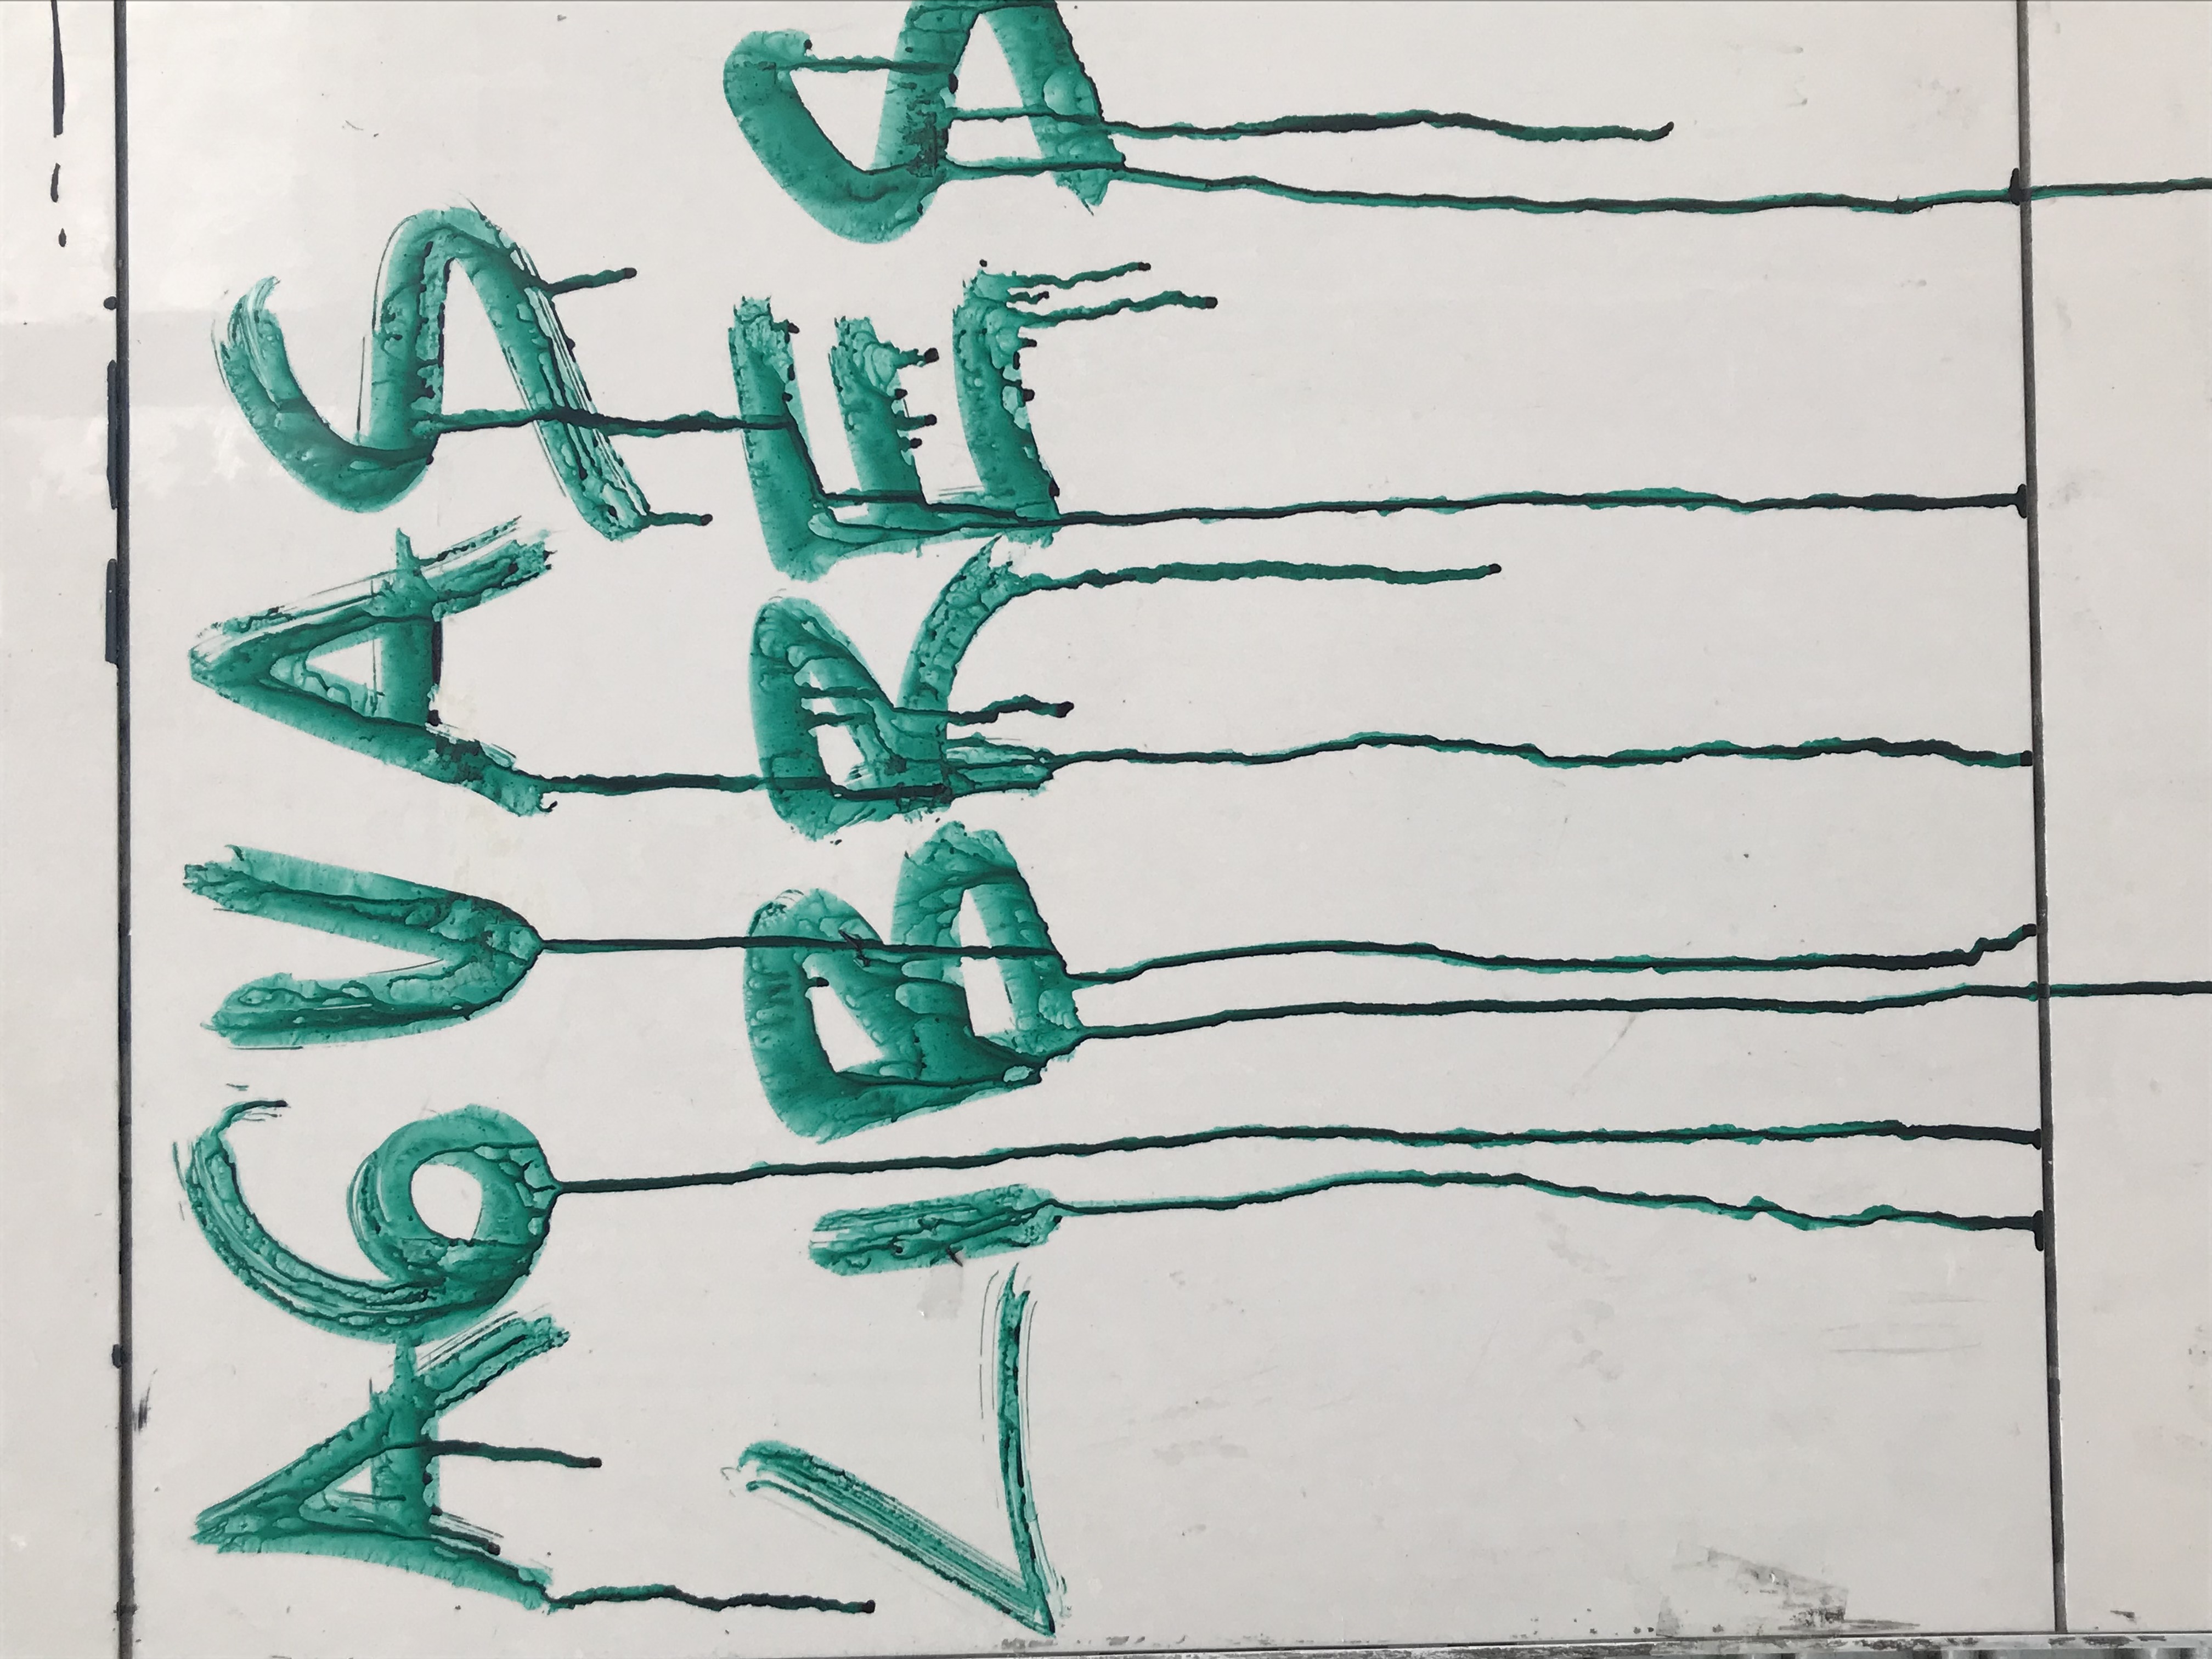 AGUAS
LIBRES